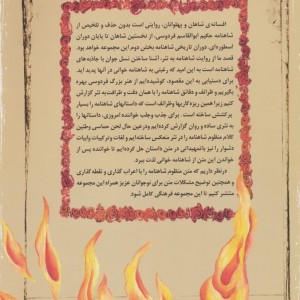 افسانه‌ی شاهان و پهلوانان، روایتی است بدون حذف و تلخیص از
شاهنامه حکیم ابوالقاسم فردوسی، از نخستین شاهان تا پایان دوران
اسطوره‌ای. دوران تاریخی شاهنامه بخش دوم این مجموعه خواهد بود.
قصد ما از روایت شاهنامه به نثر، آشنا ساختن نسل جوان با جاذبه‌های
شاهنامه است به این امید که رغبتی به شاهنامه خوانی در آنها پدید آید.
برای دستیابی به این مقصود، کوشیده‌ایم از هنر بزرگ فردوسی بهره
بگیریم و ظرائف و دقائق شاهنامه را با همان دقت و ظرافت به نثر گزارش
کنیم زیرا همین ریزه‌کاریها و ظرائف است که داستانهای شاهنامه را بسیار
پرکشش ساخته است. برای جذب و جلب خواننده امروزی، داستانها را
به نثری ساده و روان گزارش کرده‌ایم و در عین حال لحن حماسی و طنین
کلام منظوم شاهنامه را در نثر منعکس ساخته‌ایم و لغات و ترکیبات و ابیات
دشوار را نیز با تمهیداتی در متن داستان حل کرده‌ایم تا خواننده از پس
خواندن این متن از شاهنامه خوانی لذت ببرد.
در نظر داریم که متن منظوم شاهنامه را با اعراب گذاری و نقطه گذاری
و همچنین توضیح مشکلات متن برای نوجوانان عزیز همراه این مجموعه
منتشر کنیم تا این مجموعه فرهنگی کامل شود.